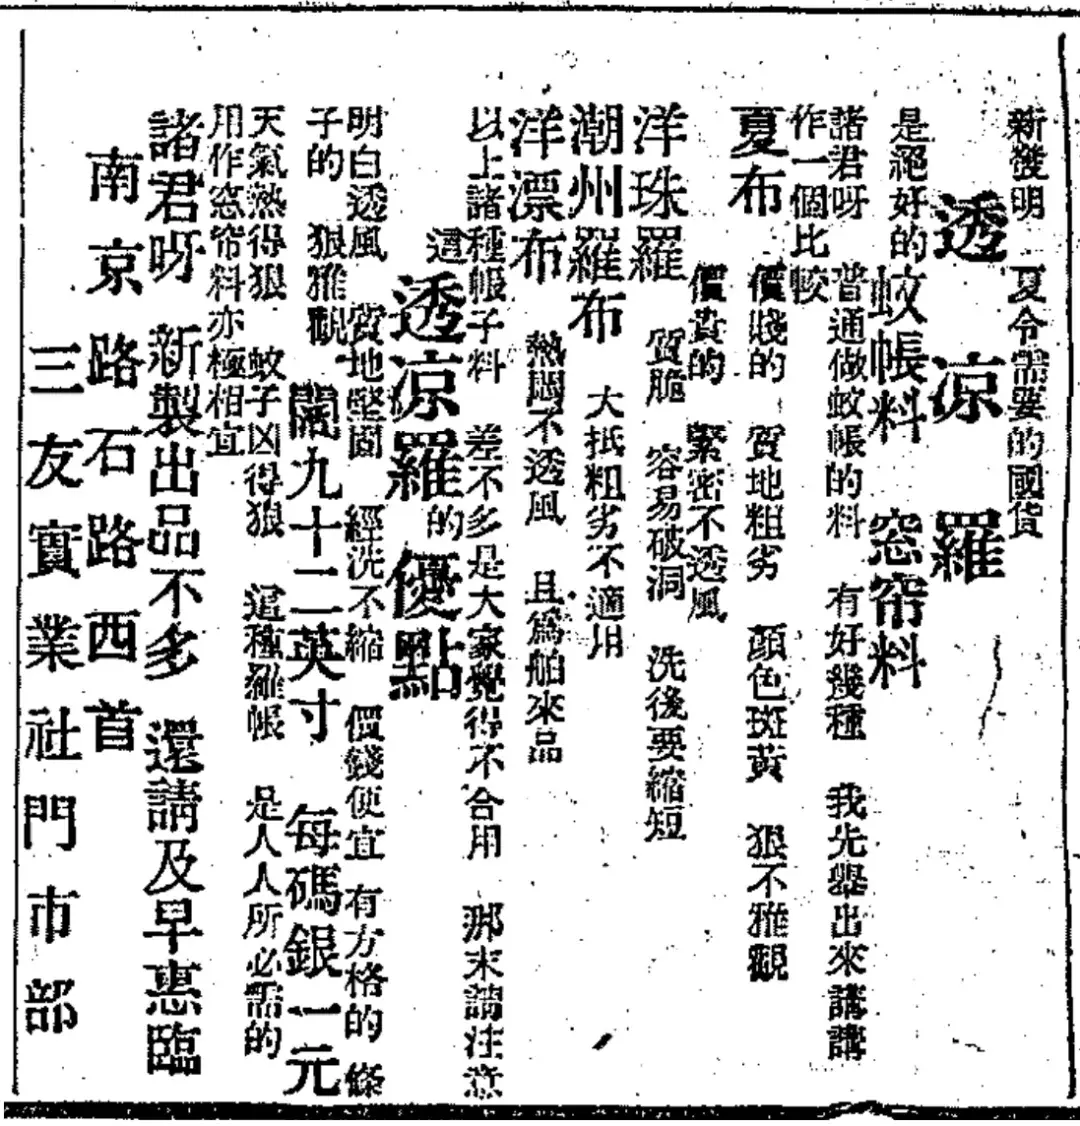 新發明　夏令需要的國貨
透涼羅
是絕好的　蚊帳料　窓帘料
諸君呀　普通做蚊帳的料　有好幾種　我先舉出來講講
作一個比較
夏布　價賤的　質地粗劣　顏色斑黃　狠不雅觀
價貴的　緊密不透風
洋珠羅　質脆　容易破洞　洗後要縮短
潮州羅布　大抵粗劣不適用
洋漂布　熱悶不透風　且爲舶來品
以上諸種帳子料　差不多是大家覺得不合用　那末請注意
這透涼羅的優點
明白透風　質地堅固　經洗不縮　價錢便宜　有方格的　條
子的　狠雅觀　闊九十二英寸　每碼銀一元
天氣熱得狠　蚊子凶得狼　這種羅帳　是人人所必需的
用作窓帘料亦極相宜
諸君呀　新製出品不多　還請及早惠臨
南京路石路西首
三友實業社門市部